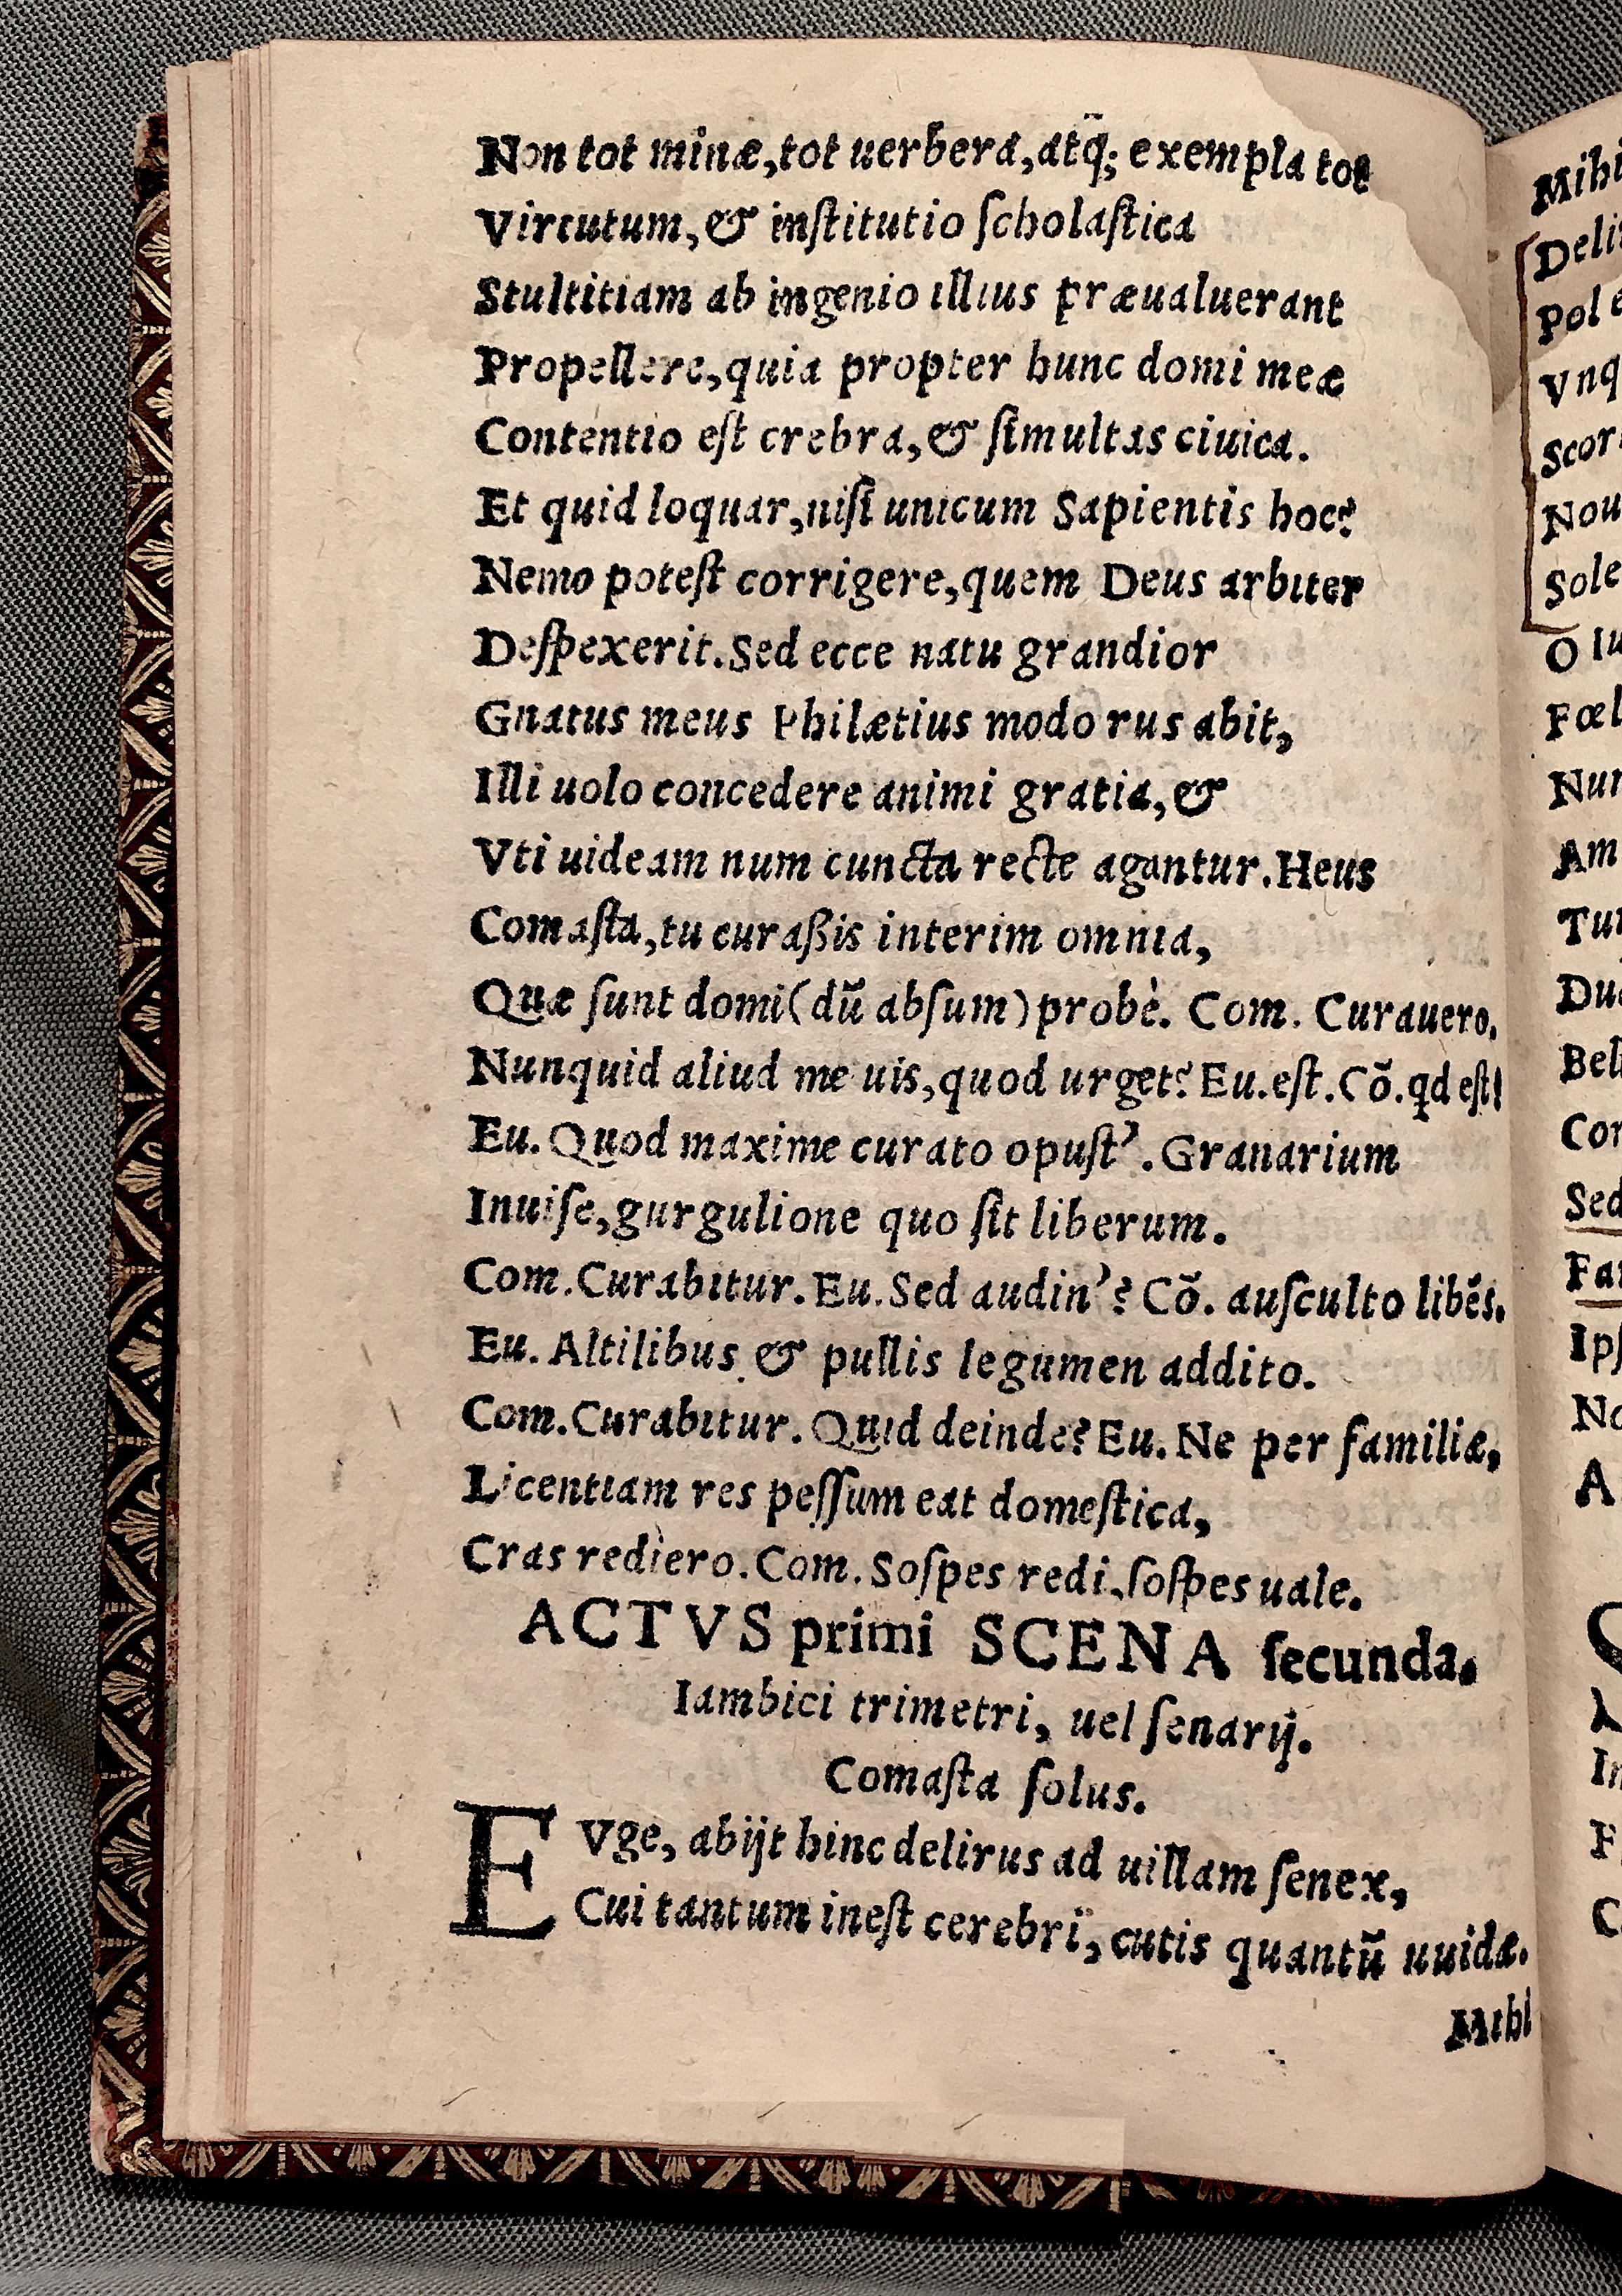 Non tot minæ, tot uerbera, atq̃; exempla tot
Virtutum, & inſtitutio ſcholaſtica
Stultitiam ab ingenio illius præualuerant
Propellere, quia propter hunc domi meæ
Contentio eſt crebra, & ſimultas ciuica.
Et quid loquar, niſi unicum Sapientis hoc?
Nemo poteſt corrigere, quem Deus arbiter
Deſpexerit. Sed ecce natu grandior
Gnatus meus Philætius modo rus abit,
Illi uolo concedere animi gratia, &
Vti uideam num cuncta recte agantur. Heus
Comaſta, tu curaßis interim omnia,
Quæ ſunt domi (dũ abſum) probè. Com. Curauero,
Nunquid aliud me uis, quod urget? Eu. eſt. Cõ. qd eſt?
Eu. Quod maxime curato opuſt’. Granarium
Inuiſe, gurgulione quo ſit liberum.
Com. Curabitur. Eu. Sed audin’? Cõ. auſculto libẽs.
Eu. Altilibus & pullis legumen addito.
Com. Curabitur. Quid deinde? Eu. Ne per familiæ,
Licentiam res peſſum eat domeſtica,
Cras rediero. Com. Soſpes redi, ſoſpes uale.
ACTVS primi SCENA ſecunda.
Iambici trimetri, uel ſenarij.
Comaſta ſolus.
EVge, abijt hinc delirus ad uillam ſenex,
Cui tantum ineſt cerebri, cutis quantũ uuidæ.
Mihi
Mihi
Pol
Vnq
Scor
Nou
Sole
O Iu
Fœl
Nun
Am
Bel
Con
Sed
Fa
Ipſ
No
A